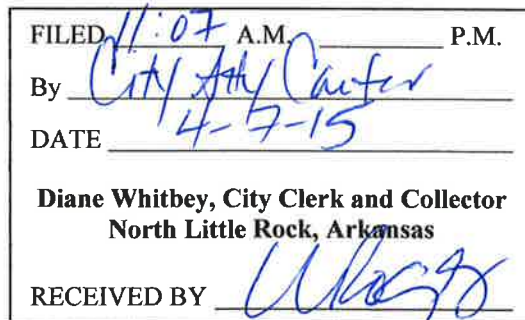 FILED 11:07 A.M. P.M.
By City Atty Carter
DATE 4-7-15
Diane Whitbey, City Clerk and Collector
North Little Rock, Arkansas
RECEIVED BY